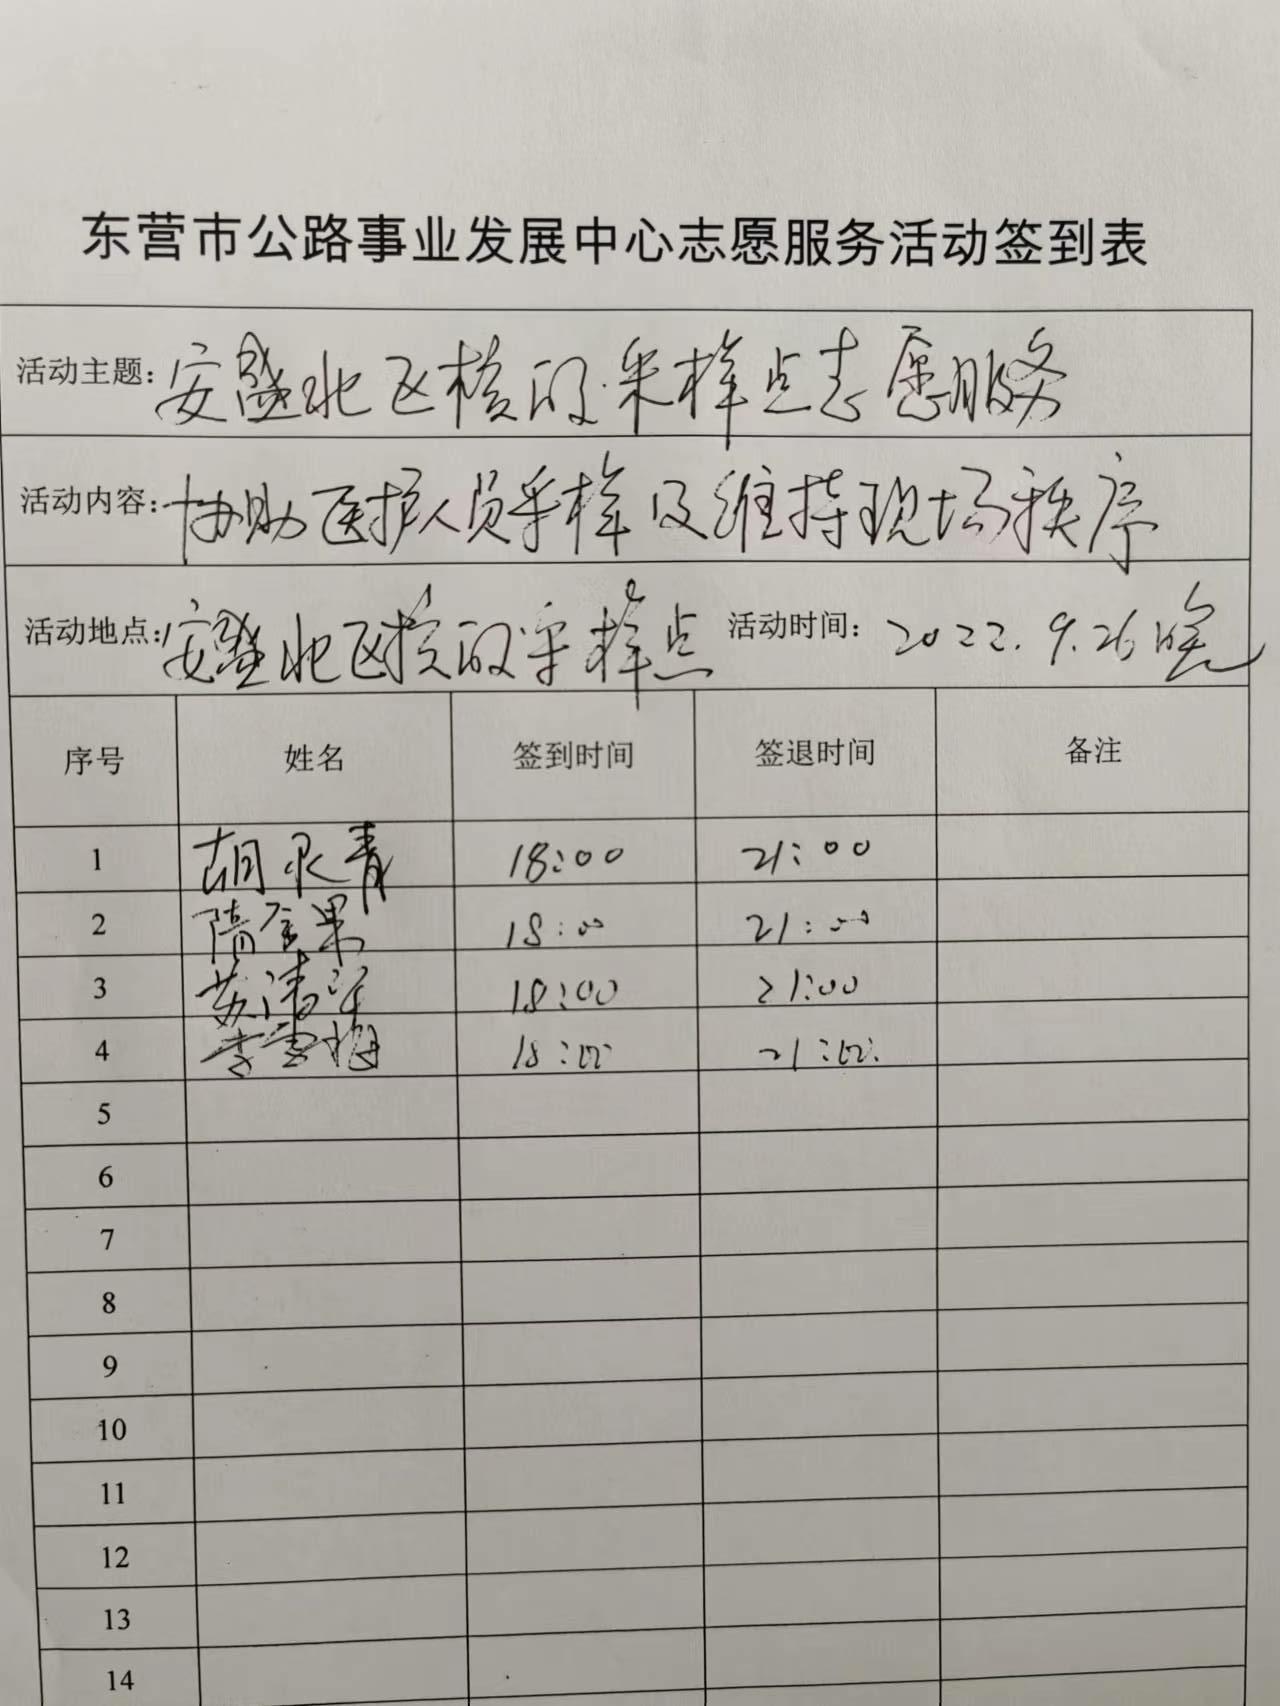 东营市公路事业发展中心志愿服务活动签到表
活动主题: 安盛北区核酸采样点志愿服务
活动内容: 协助医护人员采样及维持现场秩序
活动地点: 安盛北区核酸采样点 活动时间: 2022.9.26晚
序号 姓名 签到时间 签退时间 备注
1 胡永青 18:00 21:00
2 隋金果 18:00 21:00
3 苏清 18:00 21:00
4 李雪梅 18:00 21:00
5
6
7
8
9
10
11
12
13
14